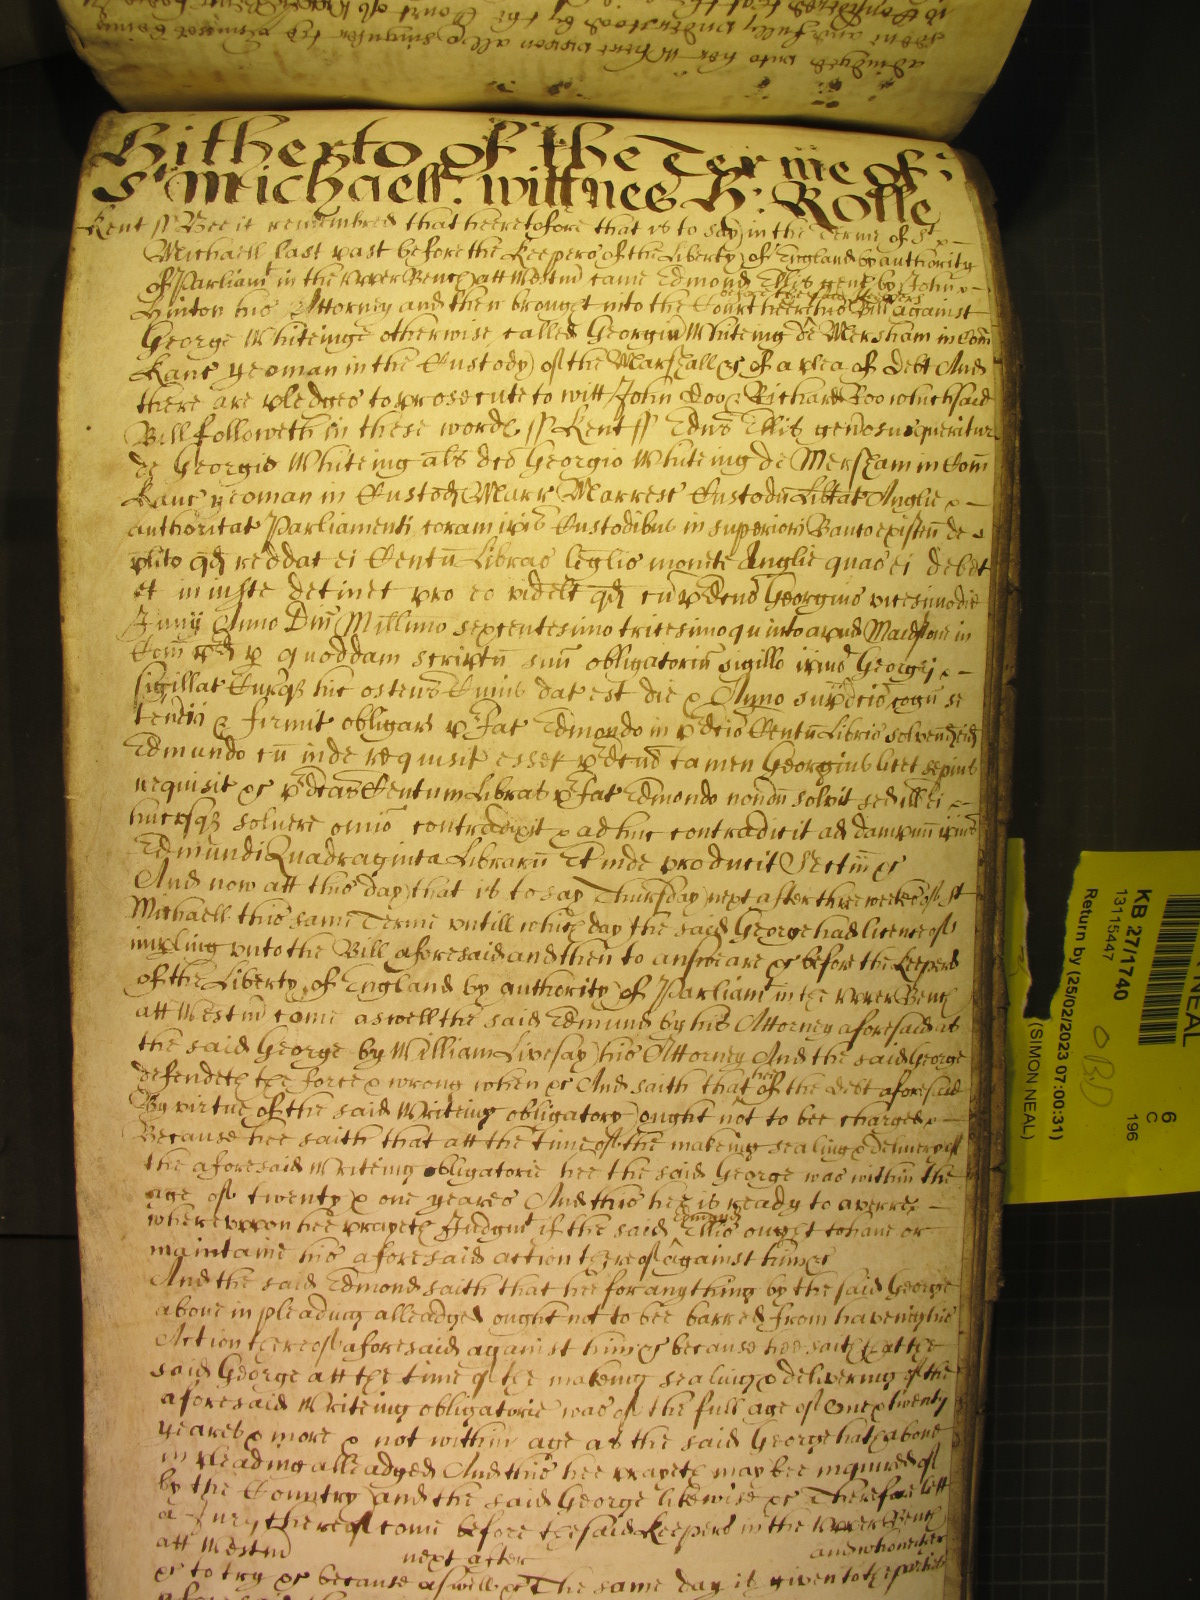 Hitherto of the Terme of
St Michaell: wittnes H: Rolle
Kent ss Bee it remembred that heeretofore that is to say in the Terme of St
Michaell last past before the Keepers of the Liberty of England by authority
of Parliamt in the Upper Bench att Westm came Edmond Ellis gent by John
Hinton his Attorney and then brought into the Court heere his Bill against
George Whiteinge otherwise called George Whiteing de Mersham in Com
Kanc yeoman in the Custody of the Marshall &c of a plea of debt And
there are pledges to prosecute to witt John Doo & Richard Roo which said
Bill followeth in these words ss Kent ss Edms Ellis generosus queritur
de Georgio Whiteing als dco Georgio Whiteing de Mersham in Com
Kanc yeoman in Custod Marr Marresc Custodu Libtat Anglie
authoritat Parliamenti coram ipis Custodibus in superiori Banco existen de
plito qd reddat ei Centu Libras leglis monete Anglie quas ei debet
et iniuste detinet pro eo videlt qd cu pdcus Georgius vicesimo die
Junij Anno Dni Millimo sexcentesimo tricesimo quinto apud Maidston in
Com pd p quoddam scriptu suu obligatoriu sigillo ipius Georgij
sigillat Curq hic ostens Cuius dat est die & Anno supdcis cogn se
teneri & firmit obligari pfat Edmondo in pdcis Centu Libris solvend eid
Edmundo cu inde requisit esset pdcus tamen Georgius licet sepius
requisit &c pdcas Centum Libras pfat Edmondo nondu solvit sed ill ei
hucusq soluere omio contradixit & adhuc contradicit ad dampnu ipius
Edmundi Quadraginta Libraru Et inde producit Sectam &c
And now att this day that is to say Thursday next after three weekes of St
Michaell this same Terme untill which day the said George had licence of
imparling unto the Bill aforesaid and then to answeare &c before the Keepers
of the Liberty of England by authority of Parliamt in the Upper Bench
att Westm come aswell the said Edmund by his Attorney aforesaid as
the said George by William Livesay his Attorney And the said George
defendeth the force & wrong when &c And saith that hee of the debt aforesaid
By virtue of the said Writeing obligatory ought not to bee charged
Because hee saith that att the time of the makeing sealing & delivery of
the aforesaid Writeing obligatorie hee the said George was within the
age of twenty & one yeares And this hee is ready to averre
whereuppon hee prayeth Judgmt if the said Edmund Ellis ought to have or
maintaine his aforesaid action thereof against him &c
And the said Edmond saith that hee for anything by the said George
above in pleading alleadged ought not to bee barred from haveing his
Action thereof aforesaid against him &c because hee saith that the
said George att the time of the makeing sealing & delivering of the
aforesaid Writeing obligatorie was of the full age of One & twenty
yeares & more & not within age as the said George hath above
in pleading alleadged And this hee prayeth may bee inquired of
by the Country and the said George likewise &c Therefore lett
a Jury thereof come before the said Keepers in the Upper Bench
att Westm next after and who neither
&c to try &c because aswell &c The same day is given to the parties
aforesaid
KB 27/1740
13115447
Return by (25/02/2023 07:00:31)
(SIMON NEAL)
6
C
196
NEAL